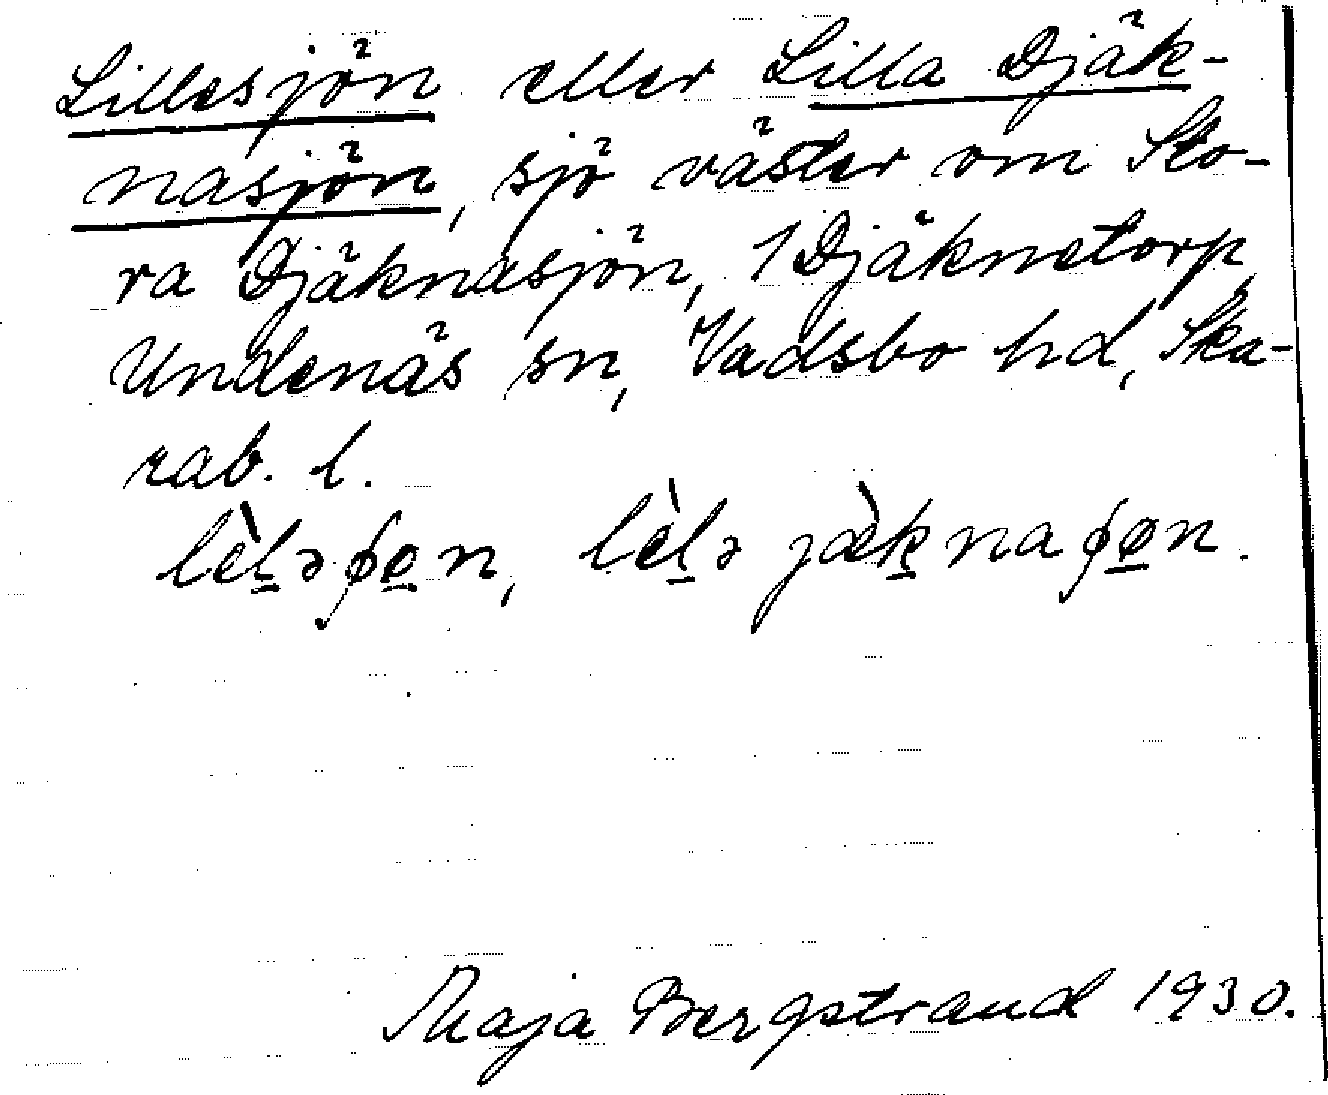 Lillesjön eller Lilla Djäk-
nasjön, sjö väster om Sto-
ra Djäknasjön, 1 Djäknetorp,
Undenäs sn, Vadsbo hd, Ska-
rab. l.
Maja Bergstrand 1930.